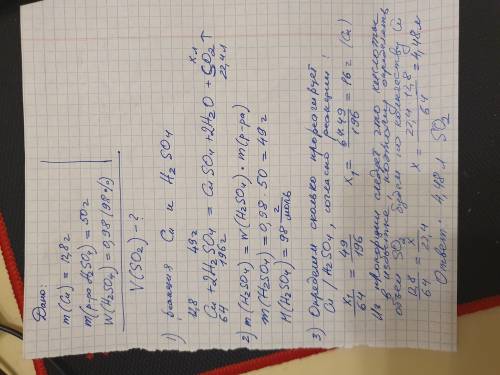 Дано:
m(Cu) = 12,8 г
m(р-ра H₂SO₄) = 50 г
W(H₂SO₄) = 0,98 (98%)
V(SO₂) - ?
1) реакция Cu и H₂SO₄
12,8 49г x л
Cu + 2H₂SO₄ = CuSO₄ + 2H₂O + SO₂↑
64 196г 22,4 л
2) m(H₂SO₄) = w(H₂SO₄) · m(р-ра)
m(H₂SO₄) = 0,98 · 50 = 49 г
M(H₂SO₄) = 98 г/моль
3) Определяем сколько прореагирует
Cu / H₂SO₄, согласно реакции:
x₁/64 = 49/196 x₁ = 64·49/196 = 16 г (Cu)
Из пропорции следует, что кислота
в избытке, поэтому определять
объем SO₂ будем по количеству Cu
12,8/64 = x/22,4 x = 22,4·12,8/64 = 4,48 л
Ответ: 4,48 л SO₂